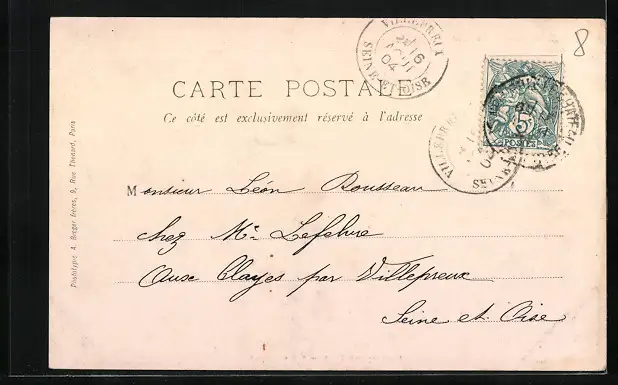 8
VILLEPREUX
16
AOUT
04
SEINE ET OISE
CARTE POSTALE
Ce côté est exclusivement réservé à l'adresse
5
POSTES
VILLEPREUX
SEINE
Monsieur Léon Rousseau
chez Mr Lefebvre
Aux Clayes par Villepreux
Seine et Oise
Phototypie A. Berger frères, 9, Rue Thénard, Paris